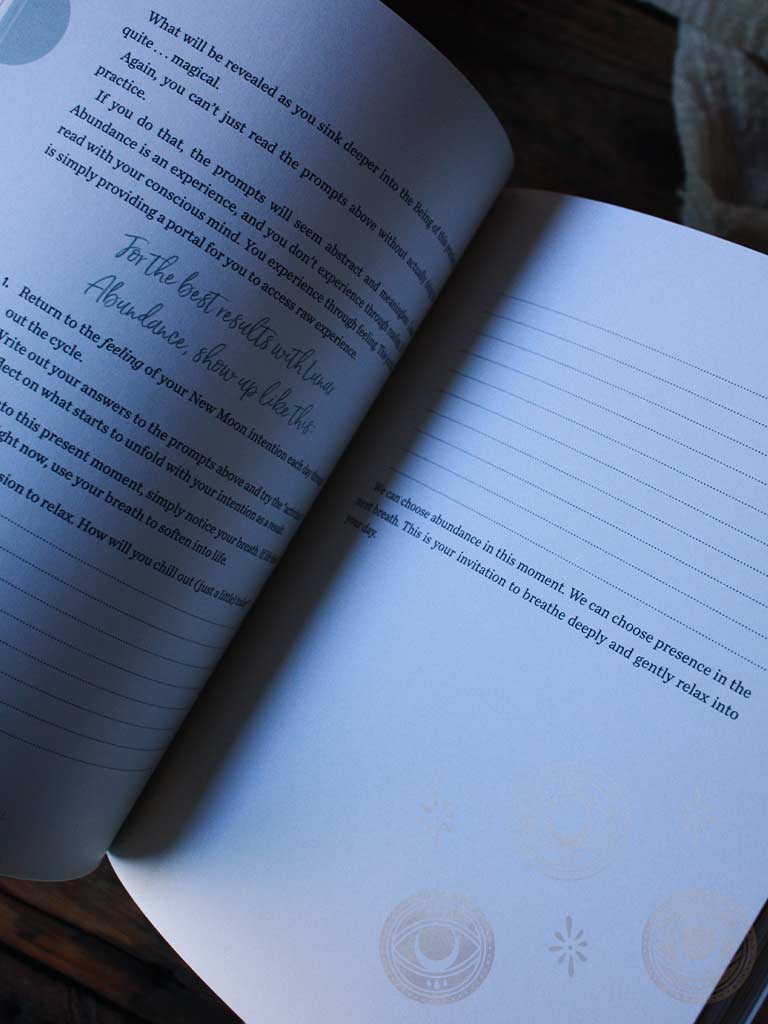 What will be revealed as you sink deeper into the Being of this
quite… magical.
Again, you can't just read the prompts above without actually
practice.
If you do that, the prompts will seem abstract and meaningless
Abundance is an experience, and you don't experience through
read with your conscious mind. You experience through feeling. This
is simply providing a portal for you to access raw experience.
For the best results with Lunar
Abundance, show up like this:
1. Return to the feeling of your New Moon intention each day
out the cycle.
Write out your answers to the prompts above and try the
flect on what starts to unfold with your intention as a result.
nto this present moment, simply notice your breath. If
ight now, use your breath to soften into life.
sion to relax. How will you chill out (just a little) today?
We can choose abundance in this moment. We can choose presence in the
next breath. This is your invitation to breathe deeply and gently relax into
your day.